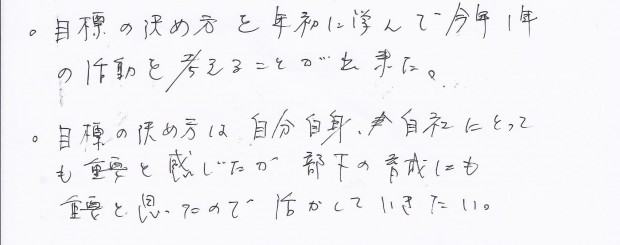 。目標の決め方を年初に学んで今年1年
の活動を考えることが出来た。
。目標の決め方は自分自身、自社にとって
も重要と感じたが部下の育成にも
重要と思ったので活かしていきたい。